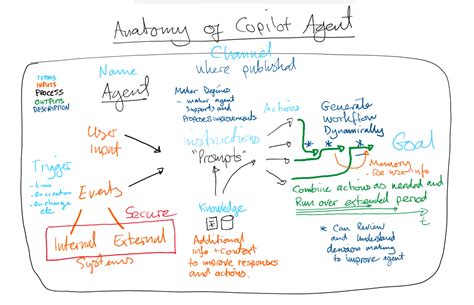 Anatomy of Copilot Agent
Channel
where published
TERMS
INPUTS
PROCESS
OUTPUTS
DESCRIPTION
Name
Agent
Maker Defines
- maker agent
supports and
proposes improvements
Actions
Generate
Workflow
Dynamically
User
Input
instructions
"Prompts"
* * *
Goal
Memory
- Re use info
Trigger
- time
- On creation
- On change
etc
Events
Combine actions as needed and
Run over extended period
t
Secure
Internal External
Systems
Knowledge
Additional
info + context
to improve responses
and actions.
* Can
Review
and Understand
decision making
to improve agent